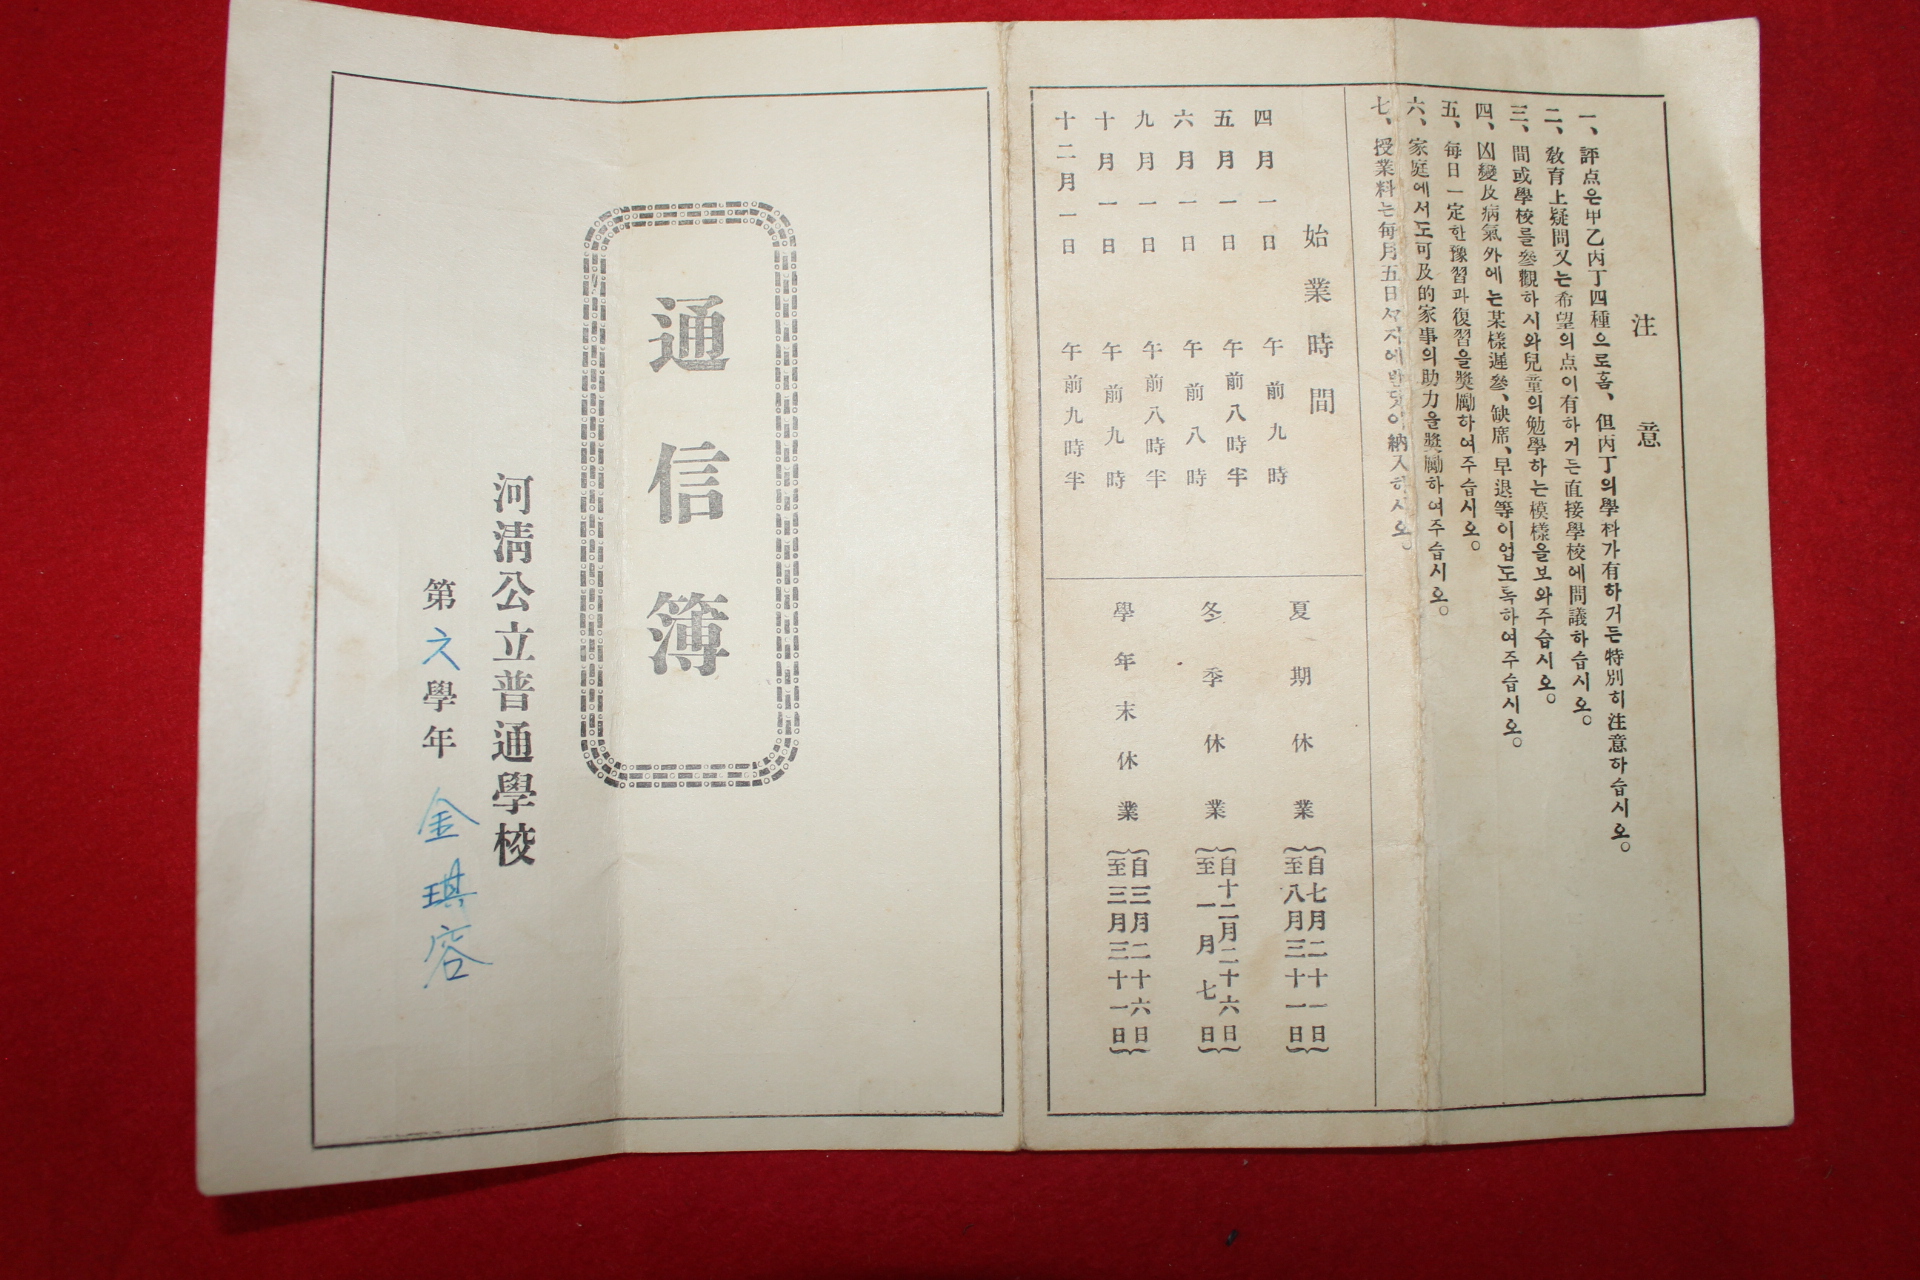 注意
一、評点은甲乙丙丁四種으로홈、但丙丁의學科가有하거든特別히注意하습시오。
二、敎育上疑問又는希望의点이有하거든直接學校에問議하습시오。
三、間或學校를參觀하시와兒童의勉學하는模樣을보와주습시오。
四、凶變及病氣外에는某樣遲參、缺席、早退等이업도록하여주습시오。
五、每日一定한豫習과復習을奬勵하여주습시오。
六、家庭에서도可及的家事의助力을奬勵하여주습시오。
七、授業料는每月五日ᄭᅡ지에반닷이納入하시오。
始業時間
四月一日 午前九時
五月一日 午前八時半
六月一日 午前八時
九月一日 午前八時半
十月一日 午前九時
十二月一日 午前九時半
夏期休業 自七月二十一日 至八月三十一日
冬季休業 自十二月二十六日 至一月七日
學年末休業 自三月二十六日 至三月三十一日
通信簿
河淸公立普通學校
第六學年 金琪容